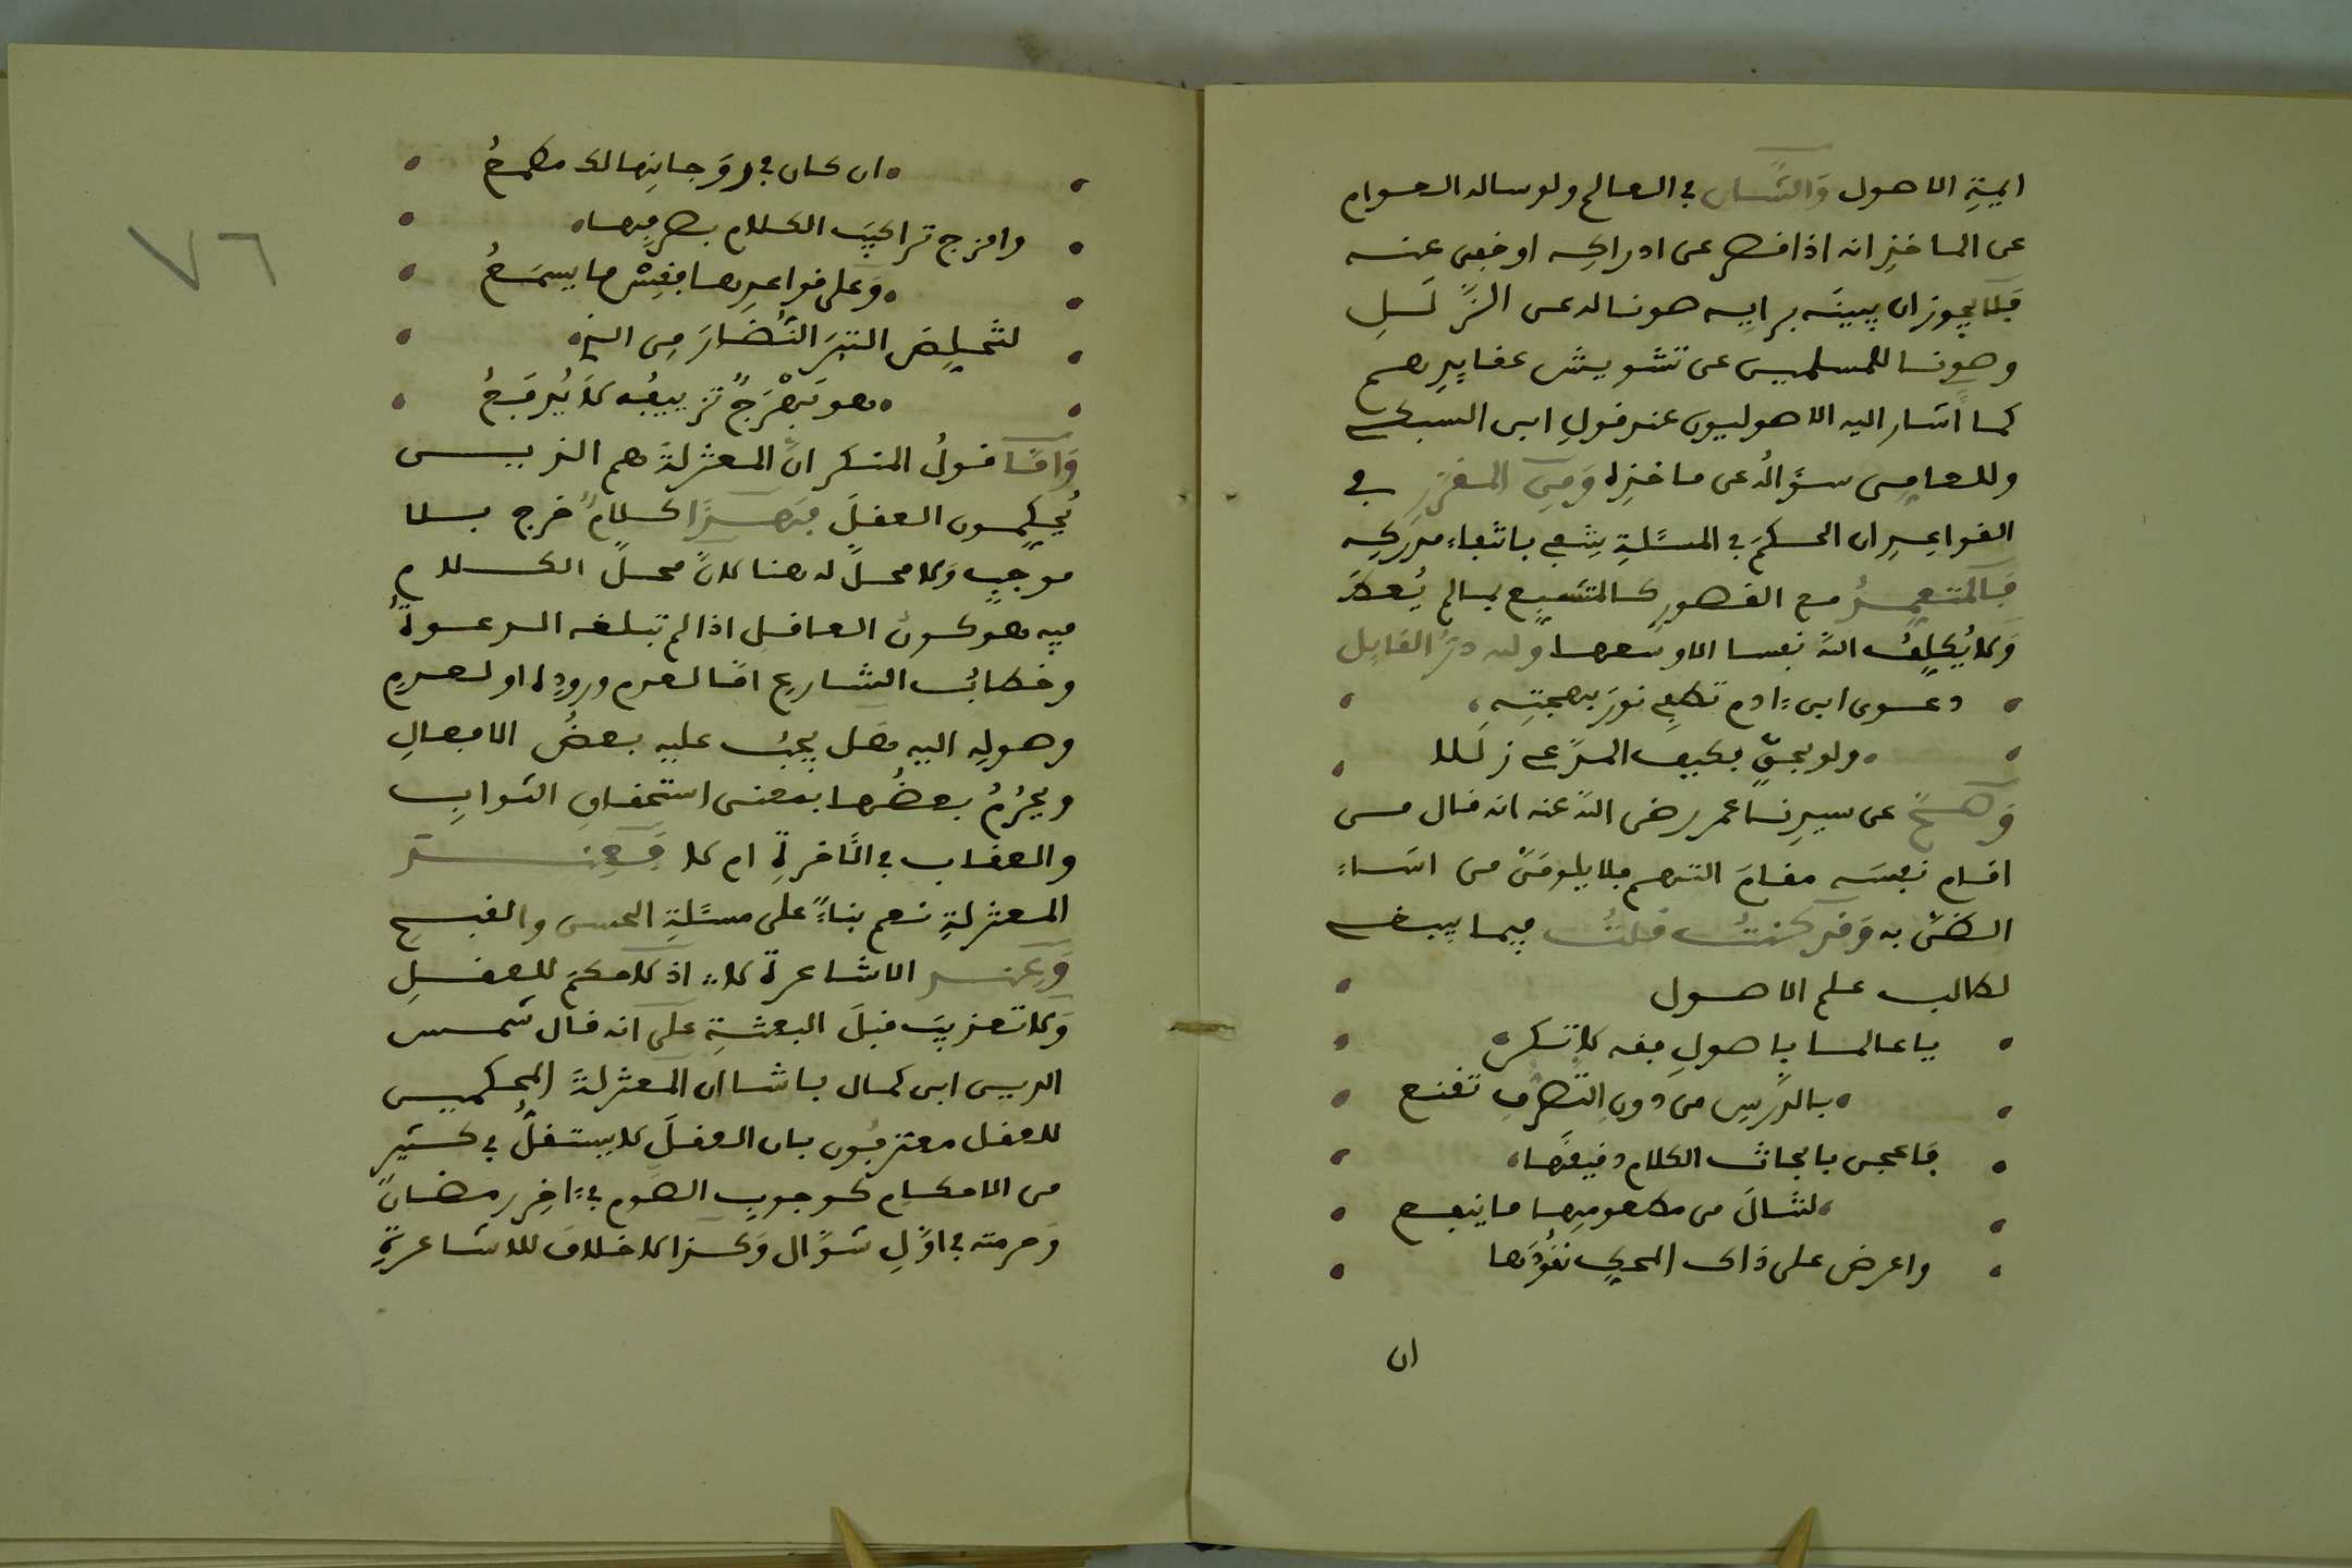 ايمةِ الاصول وَالشَّان في العالم ولو ساله العوام
عن الماخذِ انه اذا قصر عن ادراكِه او خفِى عنه
فَلا يجوز ان يبينَه برايِه صونا له عن الزَّلَلِ
وصونا للمسلمين عن تشويش عقايدِهم
كما اشار اليه الاصوليون عند قولِ ابن السبكى
وللعامِى سؤالُه عن ماخذِه وَمِن المقرَّرِ في
القواعِدِ ان الحكمَ في المسئلةِ ينتفي بانتفاء مدركِه
فَالمتعمِّدُ مع القصورِ كالمتشبِع بمالم يُعطَ
وَلا يُكلِفُ اللّٰه نفسا الا وسعها وله درُّ القايل
دعوى ابن ءادم تطفِي نورَ بهجتِهِ
ولو بحقٍ فكيف المدَّعى زَلَلا
وَصحَّ عن سيدِنا عمر رضى اللّٰه عنه انه قال من
اقام نفسَه مقامَ التهم فلا يلومَنَّ من اساء
الظنَّ به وَقد كنتُ قلتُ فيما ينبغى
لطالب علم الاصول
يا عالما باصولِ فقه لا تكن
بالدَّرسِ من دون التصرُّفِ تقنع
فَاعجن بابحاث الكلام دقيقَها
لتنالَ من مطعومِها ما ينفع
واعرض على ذاك المحكِ نقُودَها
ان
ان كان في رَوَجانِها لك مطمعُ
وامزج تراكيبَ الكلام بصرفِها
وَعلى قواعدِها فقِسْ ما يسمَعُ
لتخلِصَ التبرَ النُّضارَ مِن الذِى
هو بَهْرَجٌ تزييفُه لا يُدفَعُ
وَامَّا قولُ المنكر انَّ المعتزلةَ هم الذيــن
يُحكِّمون العقلَ فَهــذا كلامٌ خرج بــلا
موجبٍ وَلا محلَّ له هنا لانَّ محلَّ الكـــلام
فيه هو كون العاقل اذا لم تبلغه الـدعـوةُ
وخطابُ الشارع امَّا لعدم ورودِه او لعـدمِ
وصولِه اليه هَل يجبُ عليه بعضُ الافعالِ
ويحرُمُ بعضُها بمعنى استحقاقِ الثوابِ
والعقاب في الاخرةِ ام لا فَعِنـــد
المعتزلةِ نعم بناءً على مسئلةِ الحسن والقبــحِ
وَعِند الاشاعرة لا اذ لا حكمَ للعقلِ
وَلا تعذيبَ قبلَ البعثةِ على انه قال شمس
الدين ابن كمال باشا ان المعتزلةَ المحكمين
للعقل معترفون بان العقلَ لا يستقلُّ في كثير
من الاحكام كوجوبِ الصَّوم في ءاخِر رمضانَ
وَحرمته في اوَّلِ شوَّال وَكذا لا خلاف للاشاعرةِ
٧٦